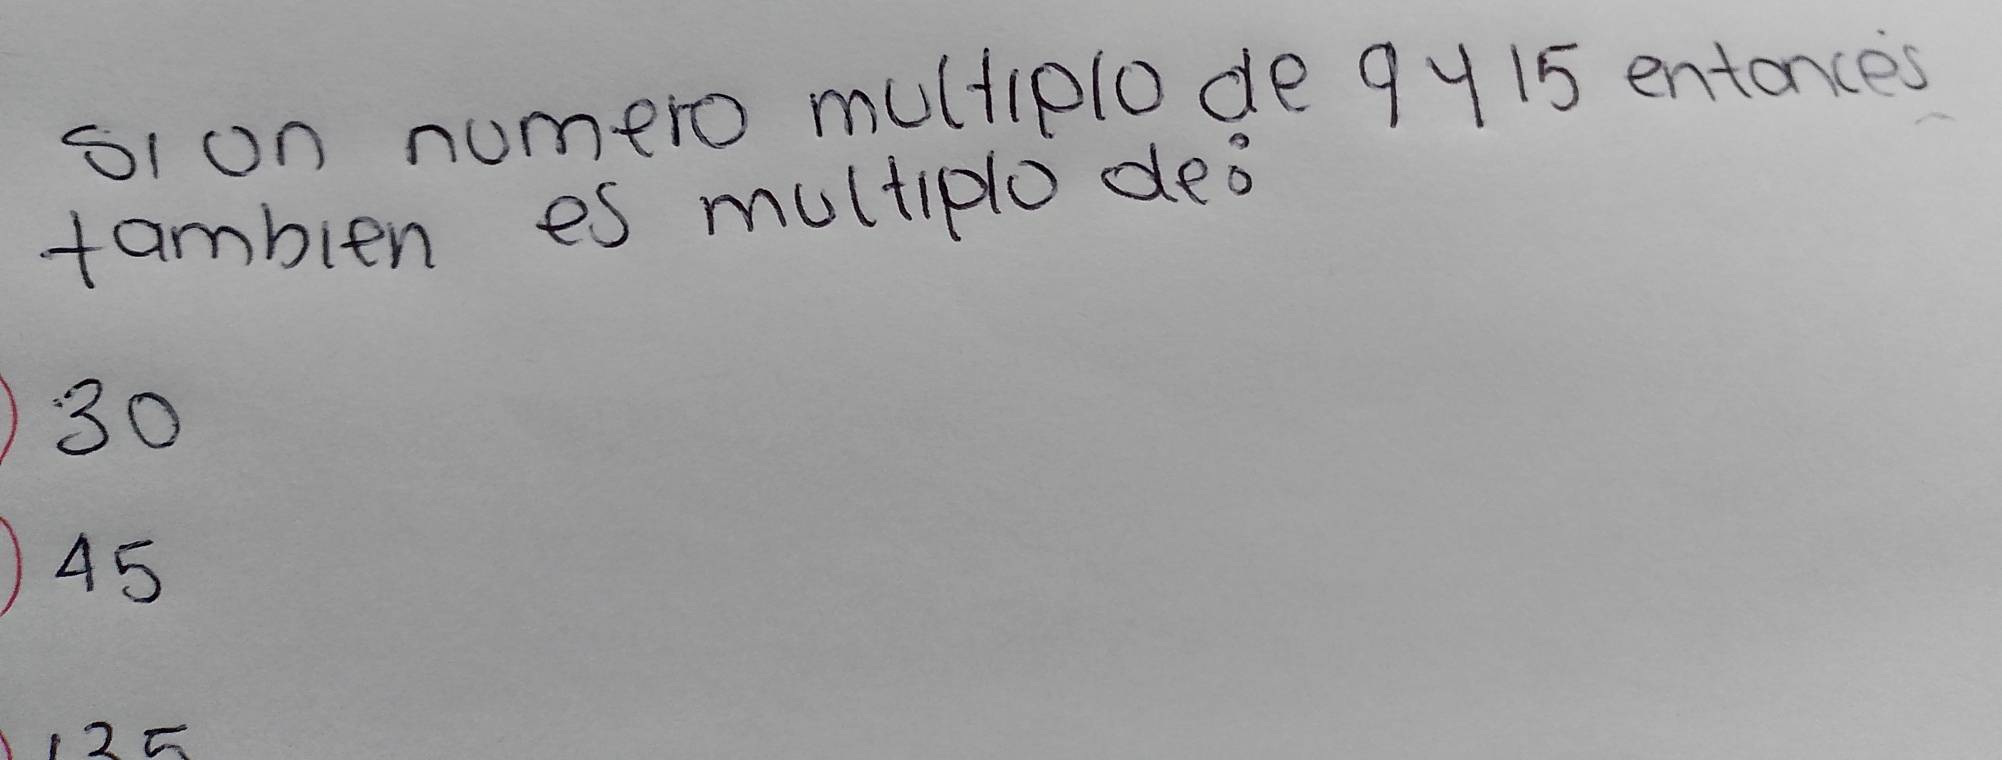 Si un numero multiplo de 9 y 15 entonces
tambien es multiplo de:
) 30
) 45
) 135